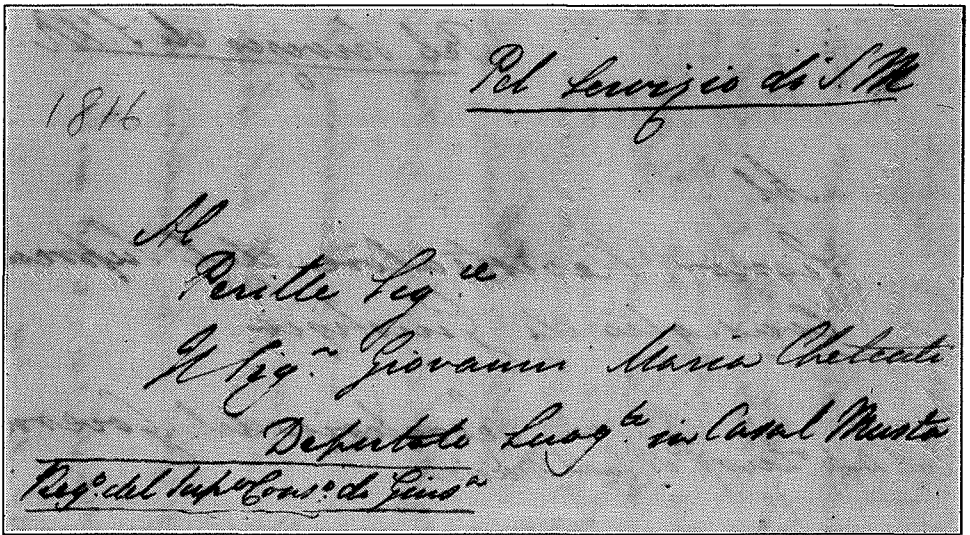 Pel Servizio di S. M
1846
Al
Perille Sig.re
Il Sig.r Giovanni Maria Chetcuti
Deputato Luog.te in Casal Musta
Reg.o del Sup.o Cons.o di Gius.a